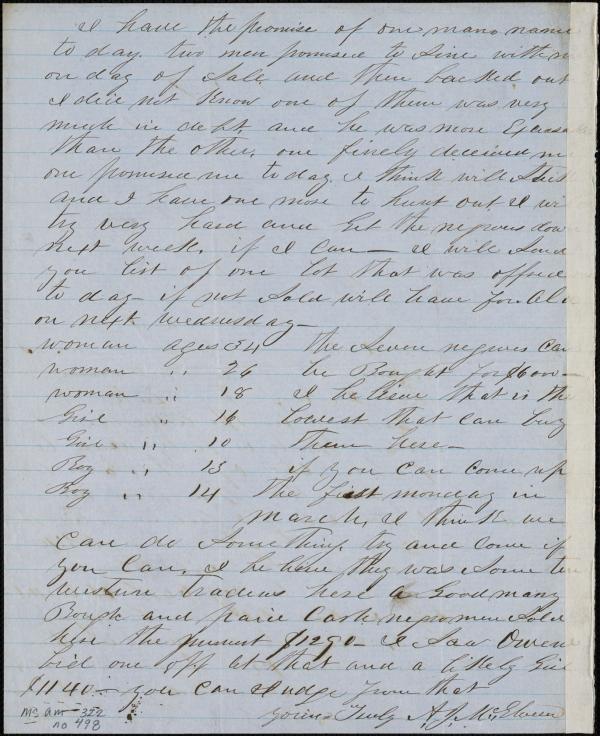 I have the promise of one mans name
to day. two men promised to Sine with m
on day of Sale and then backed out
I did not Know one of them was very
much in debt, and he was more Excusa
than the other. one finely deceived m
one promised me to day. I think will Stick
and I have one more to hunt out. I wi
try very hard and Get the negroes dow
next week. if I can — I will Send
you list of one lot that was offerd
to day — if not Sold will have for Sale
on next Wednesday —
woman ages 34 the Seven negroes can
woman " 26 be Bought for $6000 —
woman " 18 I believe that is the
Girl " 16 lowest that can buy
Girl " 10 them here —
Boy " 15 if you can come up
Boy " 14 the first monday in
march, I think we
can do Something. try and come if
you can. I be here they was Some
western traders here a Good many
Bought and paid Cash negromen Sold
here the $1290 — I Saw Owen
bid one off at that and a likely Girl
$1140 — you can Judge from that
yours Truly A. J. McElveen
Ms Am 322
no 498